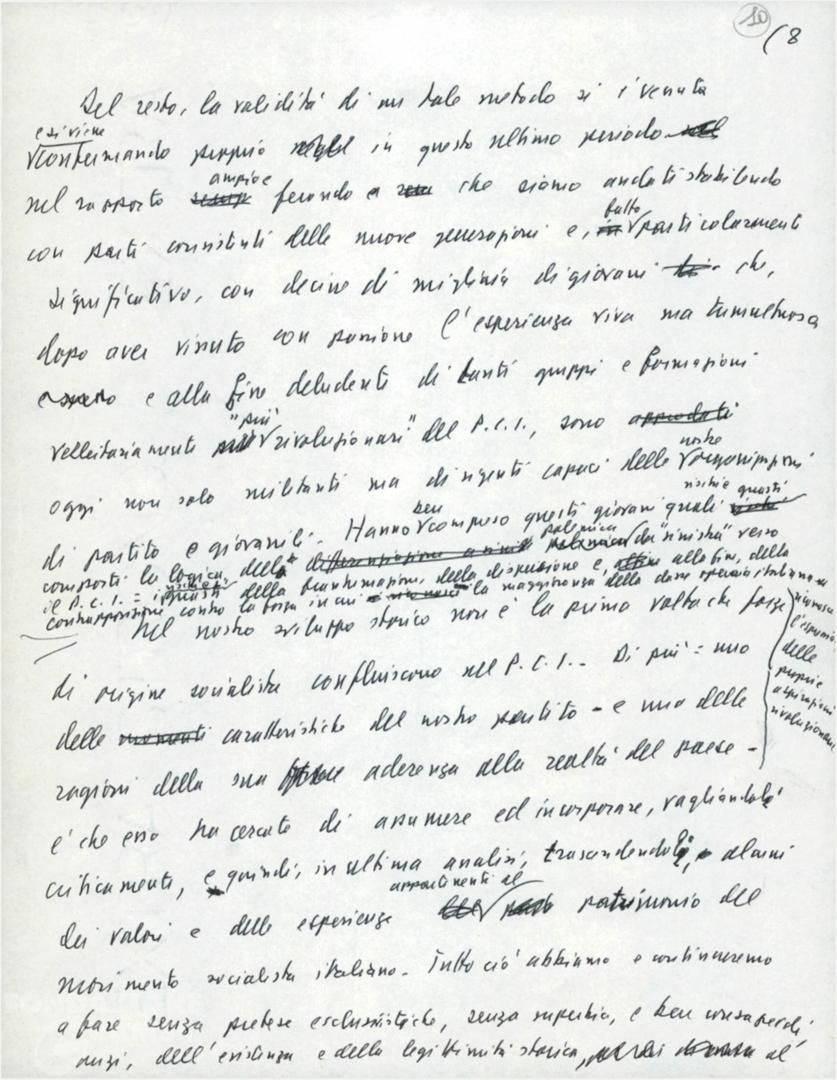 10
(8
Del resto, la validità di un tale metodo si è venuta
e si viene
confermando proprio in questo ultimo periodo
ampio e
nel rapporto fecondo che siamo andati stabilendo
fatto
con parti consistenti delle nuove generazioni e, particolarmente
significativo, con decine di migliaia di giovani che,
dopo aver vissuto con passione l'esperienza viva ma tumultuosa
e alla fine deludente di tanti gruppi e formazioni
"più
velleitariamente rivoluzionari" del P.C.I., sono approdati
nostre
oggi non solo militanti ma dirigenti capaci delle organizzazioni
ben rischi e guasti
di partito e giovanili. Hanno compreso questi giovani quali
polemica
comporti la logica della da "sinistra" verso
il P.C.I. = i guasti della frantumazione, della dispersione e, alla fine, della
contrapposizione contro la forza in cui la maggioranza della classe operaia italiana
l'espressione
delle
proprie
aspirazioni
rivoluzionarie
Nel nostro sviluppo storico non è la prima volta che forze
di origine socialista confluiscono nel P.C.I.. Di più = una
delle momenti caratteristiche del nostro partito - e una delle
ragioni della sua aderenza alla realtà del paese -
è che esso ha cercato di assumere ed incorporare, vagliandole
criticamente, e quindi, in ultima analisi, trascendendole, alcuni
appartenenti al
dei valori e delle esperienze patrimonio del
movimento socialista italiano. Tutto ciò abbiamo e continueremo
a fare senza pretese esclusivistiche, senza superbia, e ben consapevoli
anzi, dell'esistenza e della legittimità storica, al